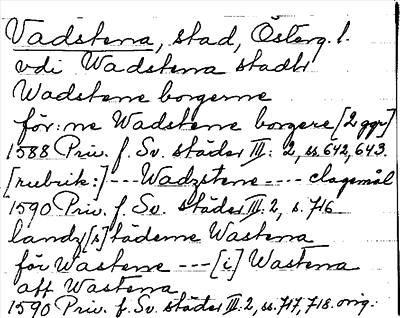 Vadstena, stad, Österg. l.
vdi Wadstena stadh
Wadstene borgerne
för:ne Wadstene borgere [2 ggr]
1588 Priv. f. Sv. städer III: 2, ss. 642, 643.
[rubrik:] --- Wadzstene ---- clagemål
1590 Priv. f. Sv. städer III: 2, s. 716
landz[s]täderne Wastena
för Wastene --- [i] Wastena
aff Wastena
1590 Priv. f. Sv. städer III: 2, ss. 717, 718. orig.